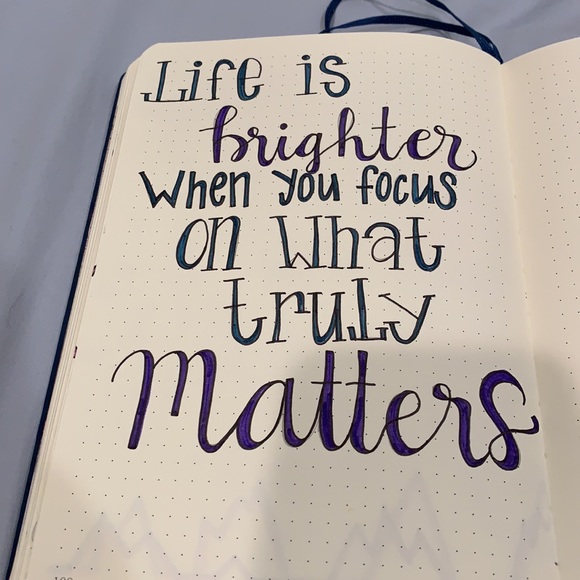 Life is
brighter
When you focus
on What
truly
Matters